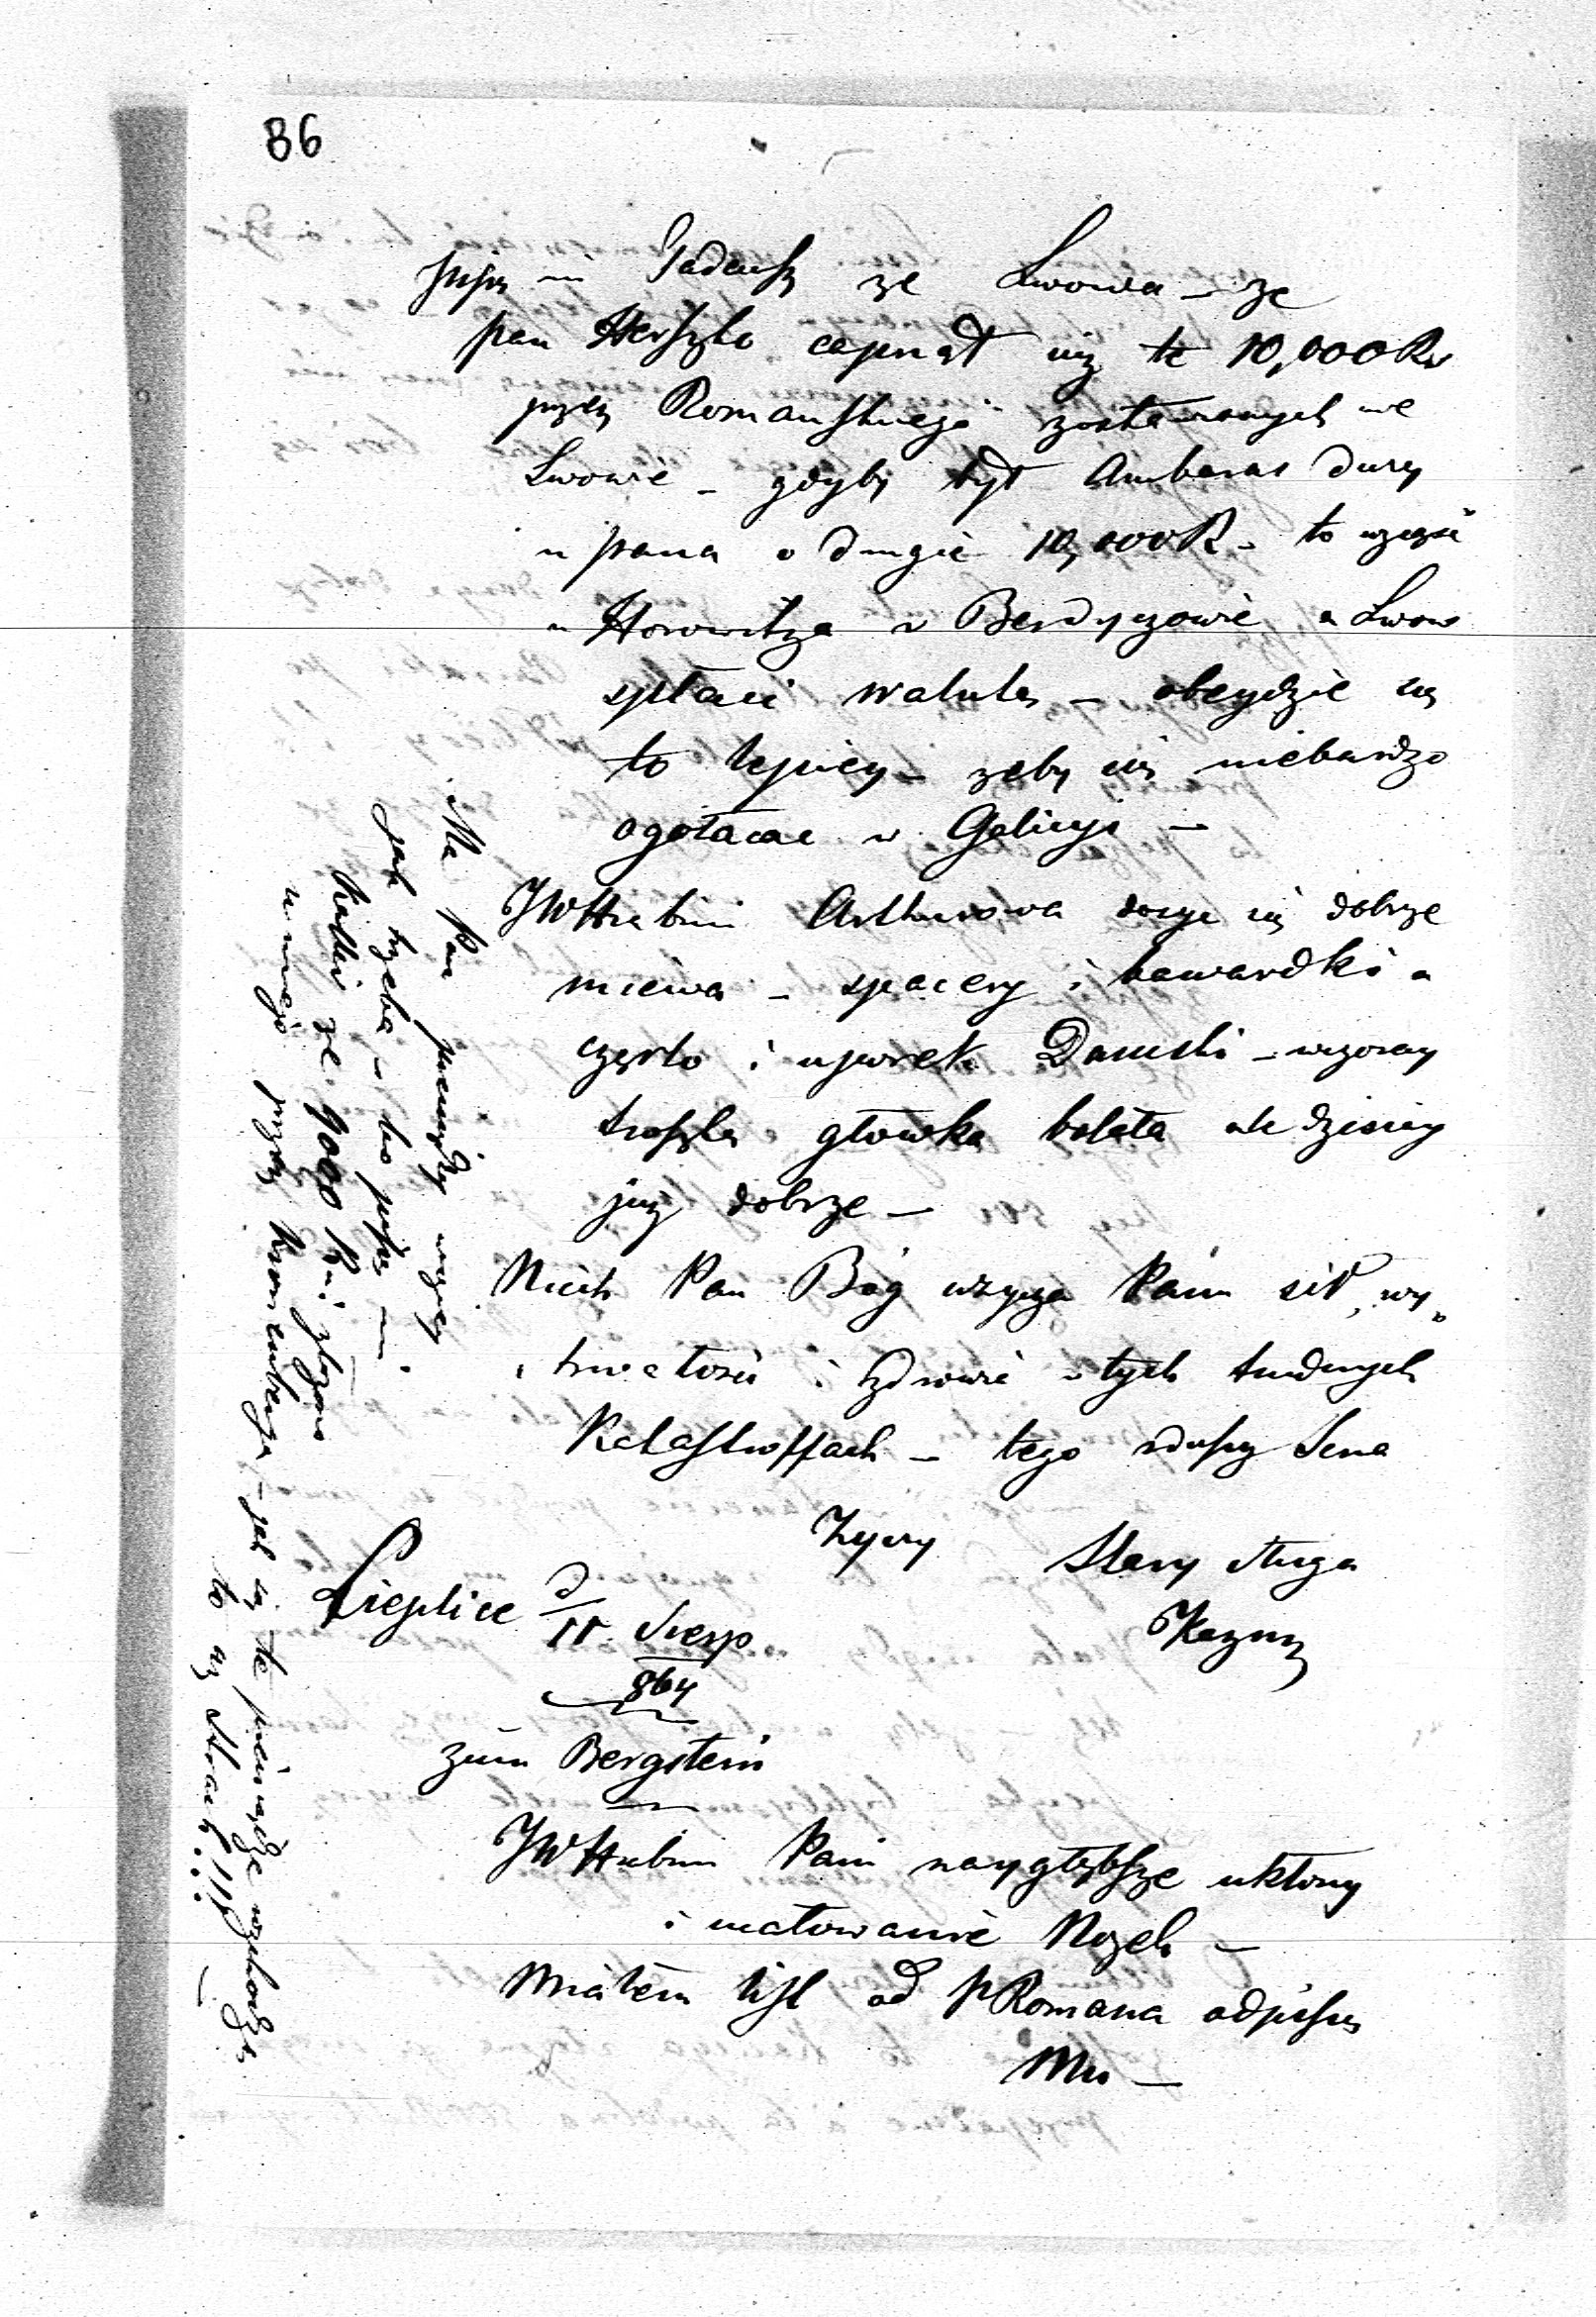 86
pisze mi Tadeusz ze Lwowa – ze
pan Herszko capnął już te 10,000 Rs
przez Romanskiego zostawionych we
Lwowie – gdyby był Ambaras duzy
u pana o drugie 10,000 R – to wziąść
u Horowitza w Berdyczowie a Lwow
spłaci walutę – obeydzie się
to lepiey – zeby się niebardzo
ogołacac w Galicyi –
JWHrabini Arthurowa dosyc się dobrze
miewa – spacery i kawardki a
często i upurek Danuski – wczoray
troszkę główka bolała ale dzisiey
już dobrze –
Niech Pan Bóg uzycza Panu sił, wy„
trwałosci i Zdrowie w tych trudnych
Katastroffach – tego zduszy Serca
Zyczy Stary sługa
Kazmz
Cieplice d 11 Sierp
864
zum Bergstein
JWHrabini Pani naygłębsze ukłony
i ucałowanie Nozek –
Miałem list od p Romana odpiszę
Mu –
Ma Pan pieniędzy więcey
jak trzeba – bo pisze mi
ze 9000 Rsi złozono
umnego przez Kronenberga – jak się te pieniądze rozchodzą
to az strach!!! –